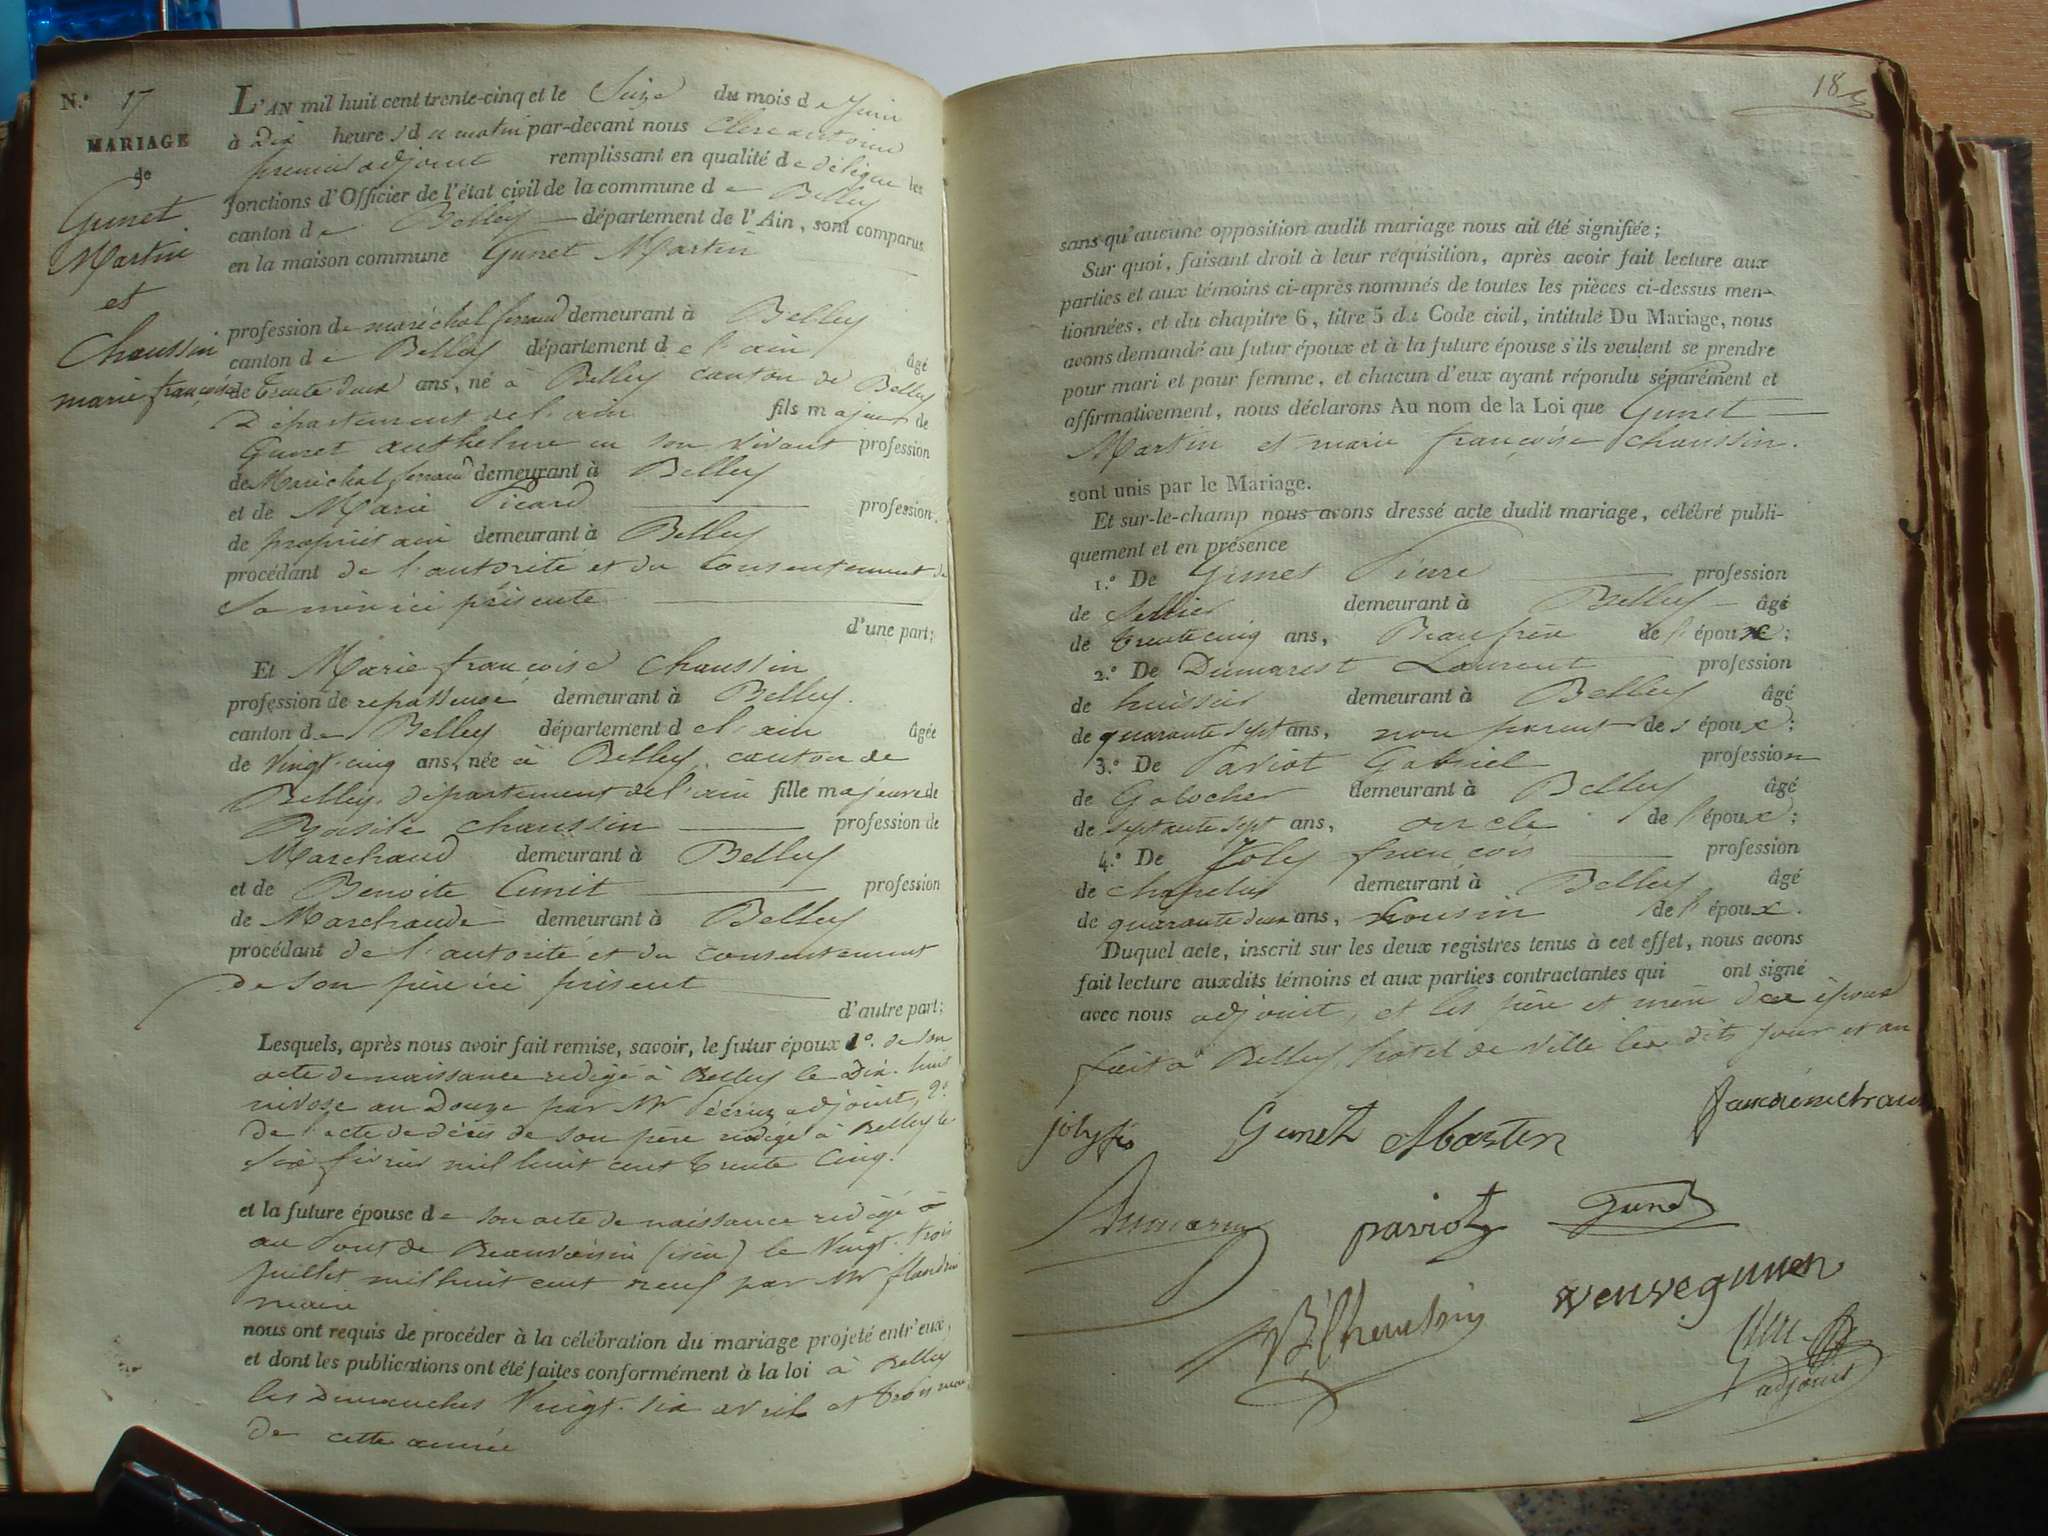 N.º 17
MARIAGE
de
Gunet
Martin
et
Chaussin
marie françoise
L'AN mil huit cent trente-cinq et le Seize du mois de Juin
à Dix heures du matin par-devant nous Clerc antoine
premier adjoint remplissant en qualité de délégué les
fonctions d'Officier de l'état civil de la commune de Belley
canton de Belley département de l'Ain, sont comparus
en la maison commune Gunet Martin
profession de maréchal ferrand demeurant à Belley
canton de Belley département de l'ain âgé
de trente deux ans, né à Belley canton de Belley
Département de l'ain fils majeur de
Gunet anthelme en son vivant profession
de Maréchal ferrand demeurant à Belley
et de Marie Picard profession
de propriétaire demeurant à Belley
procédant de l'autorité et du Consentement de
Sa mère ici présente
d'une part;
Et Marie françoise Chaussin
profession de repasseuse demeurant à Belley.
canton de Belley département de l'ain âgée
de Vingt-cinq ans, née à Belley, canton de
Belley, département de l'ain fille majeure de
Basile Chaussin profession de
Marchand demeurant à Belley
et de Benoite Cunit profession
de Marchande demeurant à Belley
procédant de l'autorité et du consentement
de son père ici présent
d'autre part;
Lesquels, après nous avoir fait remise, savoir, le futur époux 1º. de son
acte de naissance redigé à Belley le Dix-huit
nivose an Douze par Mr adjoint, 2º
De l'acte de décès de son père redigé à Belley le
Six février mil huit cent trente Cinq.
et la future épouse de son acte de naissance redigé à
au Pont de Beauvoisin (isère) le Vingt-trois
Juillet mil huit cent neuf par Mr flandrin
maire
nous ont requis de procéder à la célébration du mariage projeté entr'eux,
et dont les publications ont été faites conformément à la loi à Belley
les Dimanches Vingt-six avril et trois mai
de cette année
18
sans qu'aucune opposition audit mariage nous ait été signifiée;
Sur quoi, faisant droit à leur réquisition, après avoir fait lecture aux
parties et aux témoins ci-après nommés de toutes les pièces ci-dessus men-
tionnées, et du chapitre 6, titre 5 du Code civil, intitulé Du Mariage, nous
avons demandé au futur époux et à la future épouse s'ils veulent se prendre
pour mari et pour femme, et chacun d'eux ayant répondu séparément et
affirmativement, nous déclarons Au nom de la Loi que Gunet
Martin et marie françoise Chaussin.
sont unis par le Mariage.
Et sur-le-champ nous avons dressé acte dudit mariage, célébré publi-
quement et en présence
1.º De Gunet Pierre profession
de Sellier demeurant à Belley âgé
de trente cinq ans, Beau frère de l'époux;
2.º De Dumarest Laurent profession
de huissier demeurant à Belley âgé
de quarante sept ans, non parent des époux;
3.º De Paviot Gabriel profession
de Galocher demeurant à Belley âgé
de septante sept ans, oncle de l'époux;
4.º De Joly françois profession
de chapelier demeurant à Belley âgé
de quarante deux ans, Cousin de l'époux.
Duquel acte, inscrit sur les deux registres tenus à cet effet, nous avons
fait lecture auxdits témoins et aux parties contractantes qui ont signé
avec nous adjoint, et les père et mère des époux
fait à Belley, hotel de Ville les dits jour et an
joly fs Gunet Martin
Dumarest paviot Gunet
B Chaussin veuve gunet
Clerc
adjoint